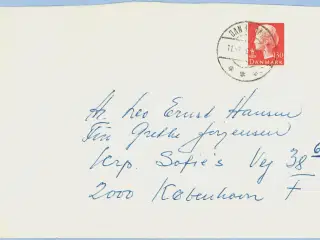 DAN
DANMARK
Hr. Leo Ernst Hansen
Frk Grethe Jørgensen
Krp. Sofie's Vej 38 6
2000 København F